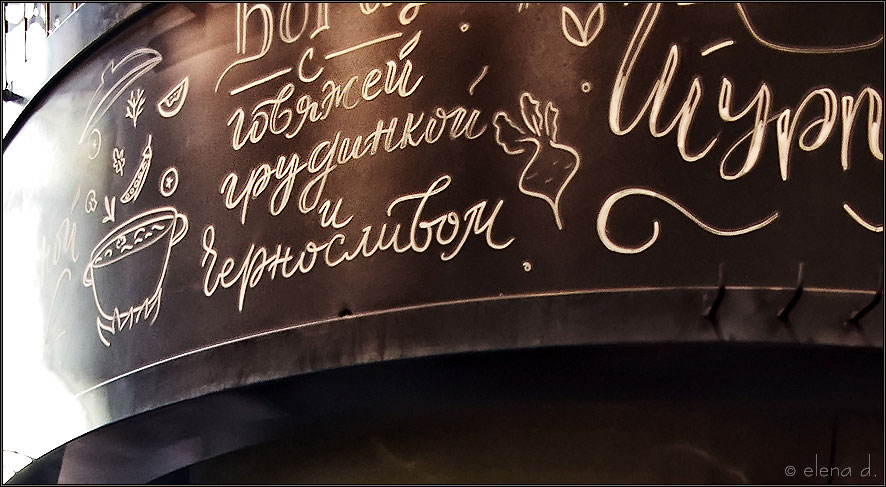 с
говяжей
грудинкой
и
черносливом
© elena d.